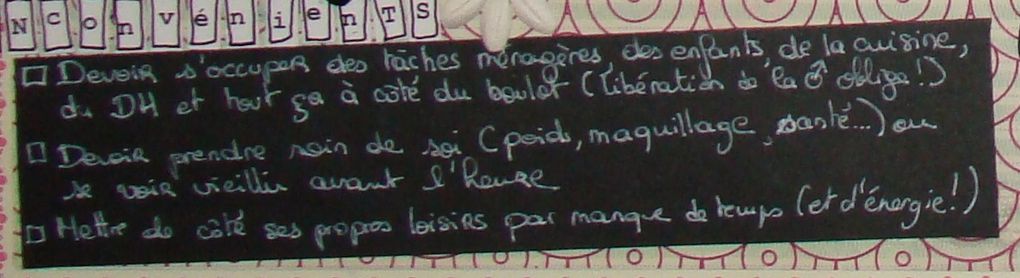 NConvénienTS
□ Devoir s'occuper des tâches ménagères, des enfants, de la cuisine,
du DH et tout ça à côté du boulot (libération de la ♂ oblige!)
□ Devoir prendre soin de soi (poids, maquillage, santé...) ou
se voir vieillir avant l'heure
□ Mettre de côté ses propres loisirs par manque de temps (et d'énergie!)